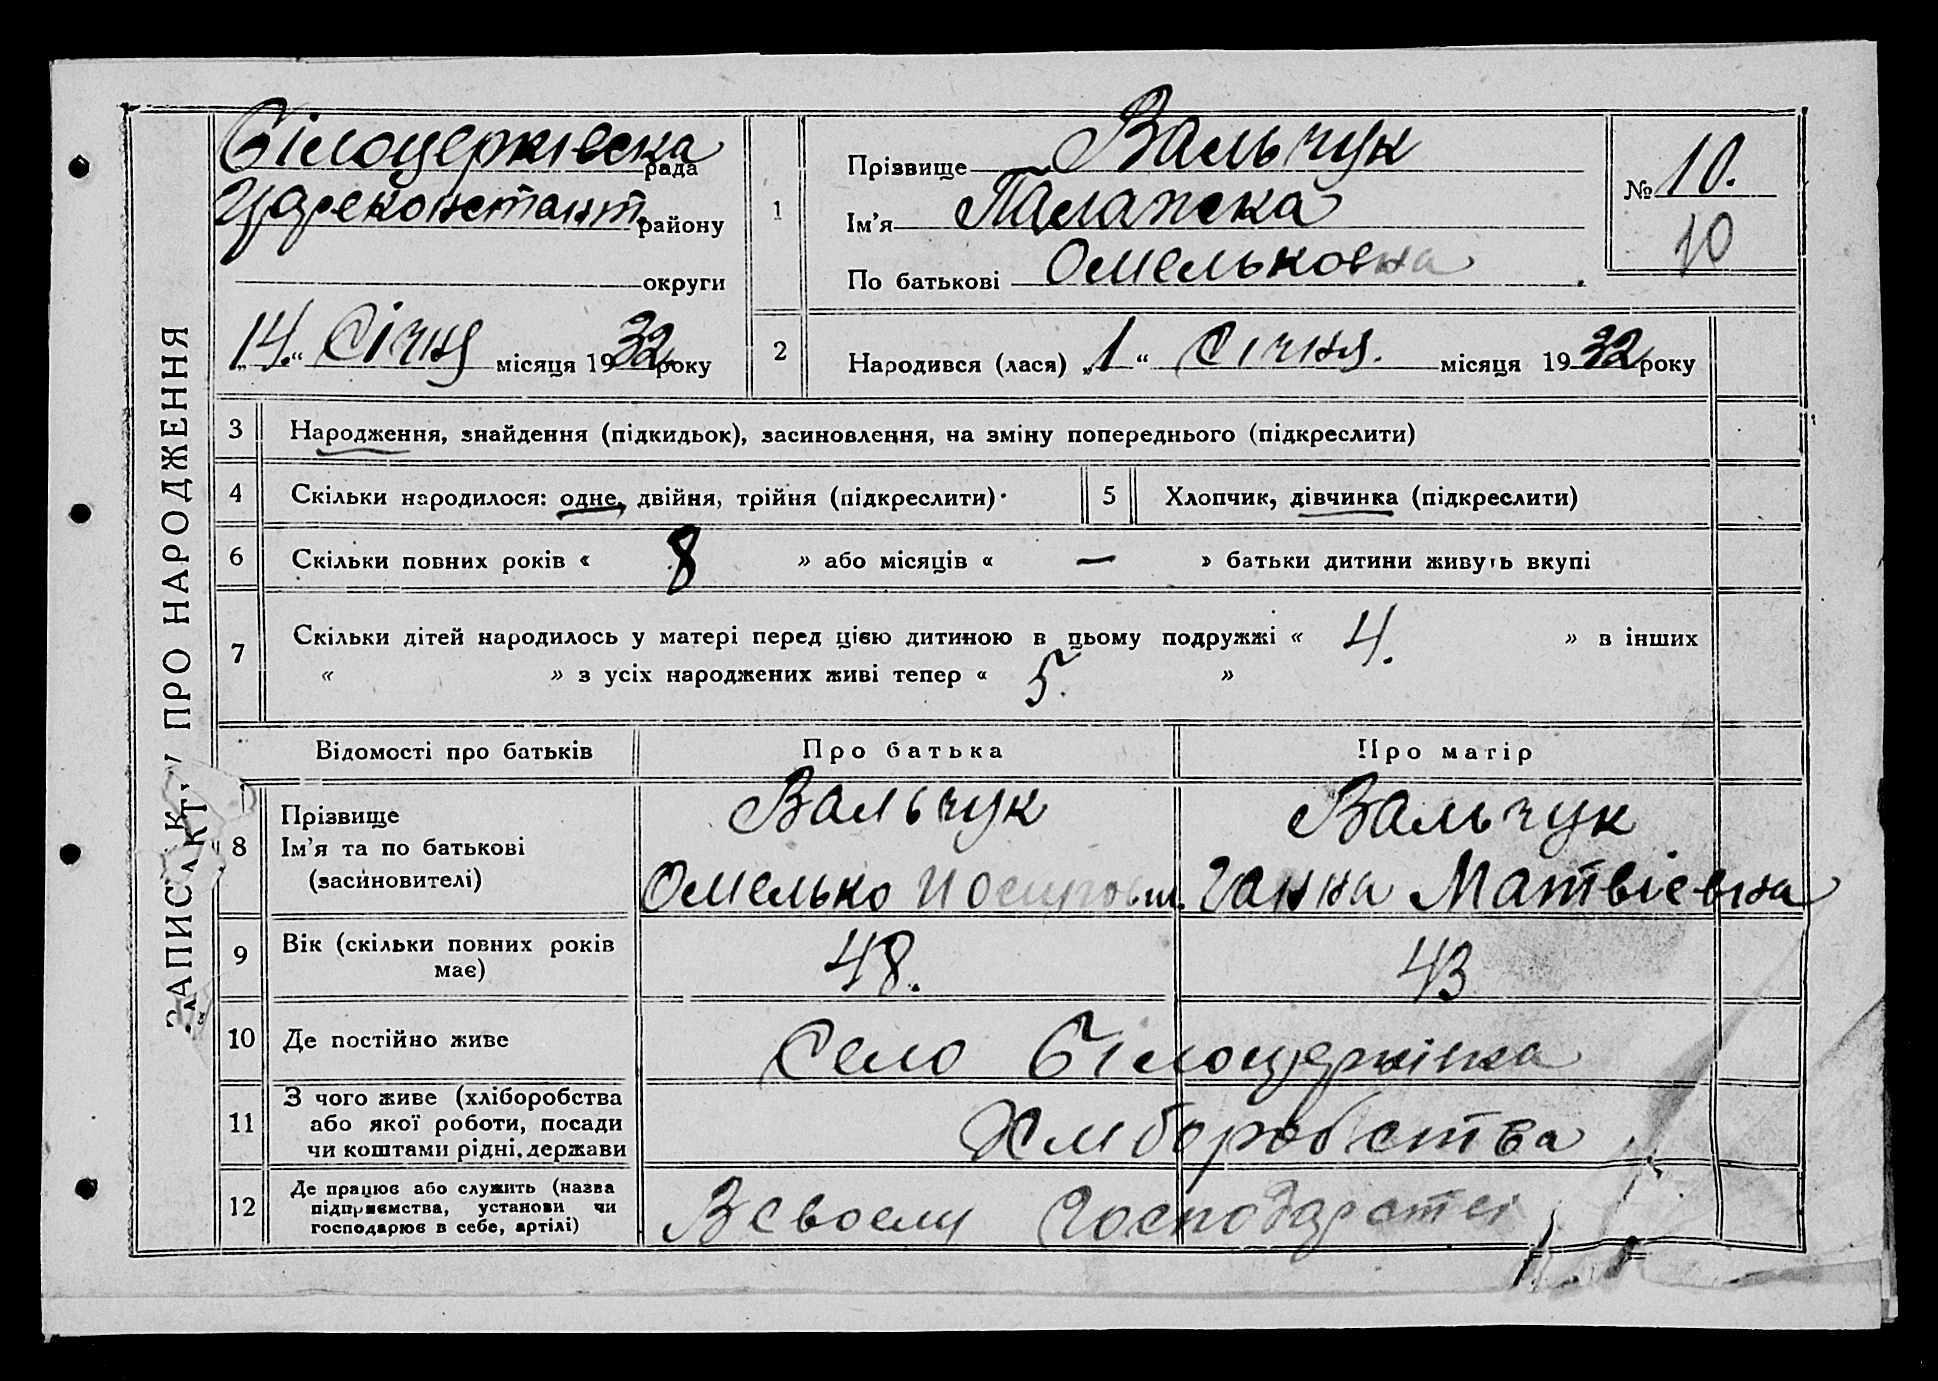 ЗАПИС АКТУ ПРО НАРОДЖЕННЯ
Білоцерківська рада
Цареконстант. району
округи
„14“ Січня місяця 1932 року
1
Прізвище Вальчук
Ім’я Палажка
По батькові Омельковна
№ 10.
10
2
Народився (лася) „1“ Січня. місяця 1932 року
3 Народження, знайдення (підкидьок), засиновлення, на зміну попереднього (підкреслити)
4 Скільки народилося: одне, двійня, трійня (підкреслити)
5 Хлопчик, дівчинка (підкреслити)
6 Скільки повних років « 8 » або місяців « — » батьки дитини живуть вкупі
7 Скільки дітей народилось у матері перед цією дитиною в цьому подружжі « 4. » в інших
« » з усіх народжених живі тепер « 5. »
Відомості про батьків Про батька Про матір
8 Прізвище
Ім’я та по батькові
(засиновителі)
Вальчук
Омелько Иосипов.
Вальчук
Ганна Матвієвна
9 Вік (скільки повних років
має)
48. 43
10 Де постійно живе Село Білоцерківка
11 З чого живе (хліборобства
або якої роботи, посади
чи коштами рідні, держави
Хліборобства
12 Де працює або служить (назва
підприємства, установи чи
господарює в себе, артілі)
В своєму Господарстві